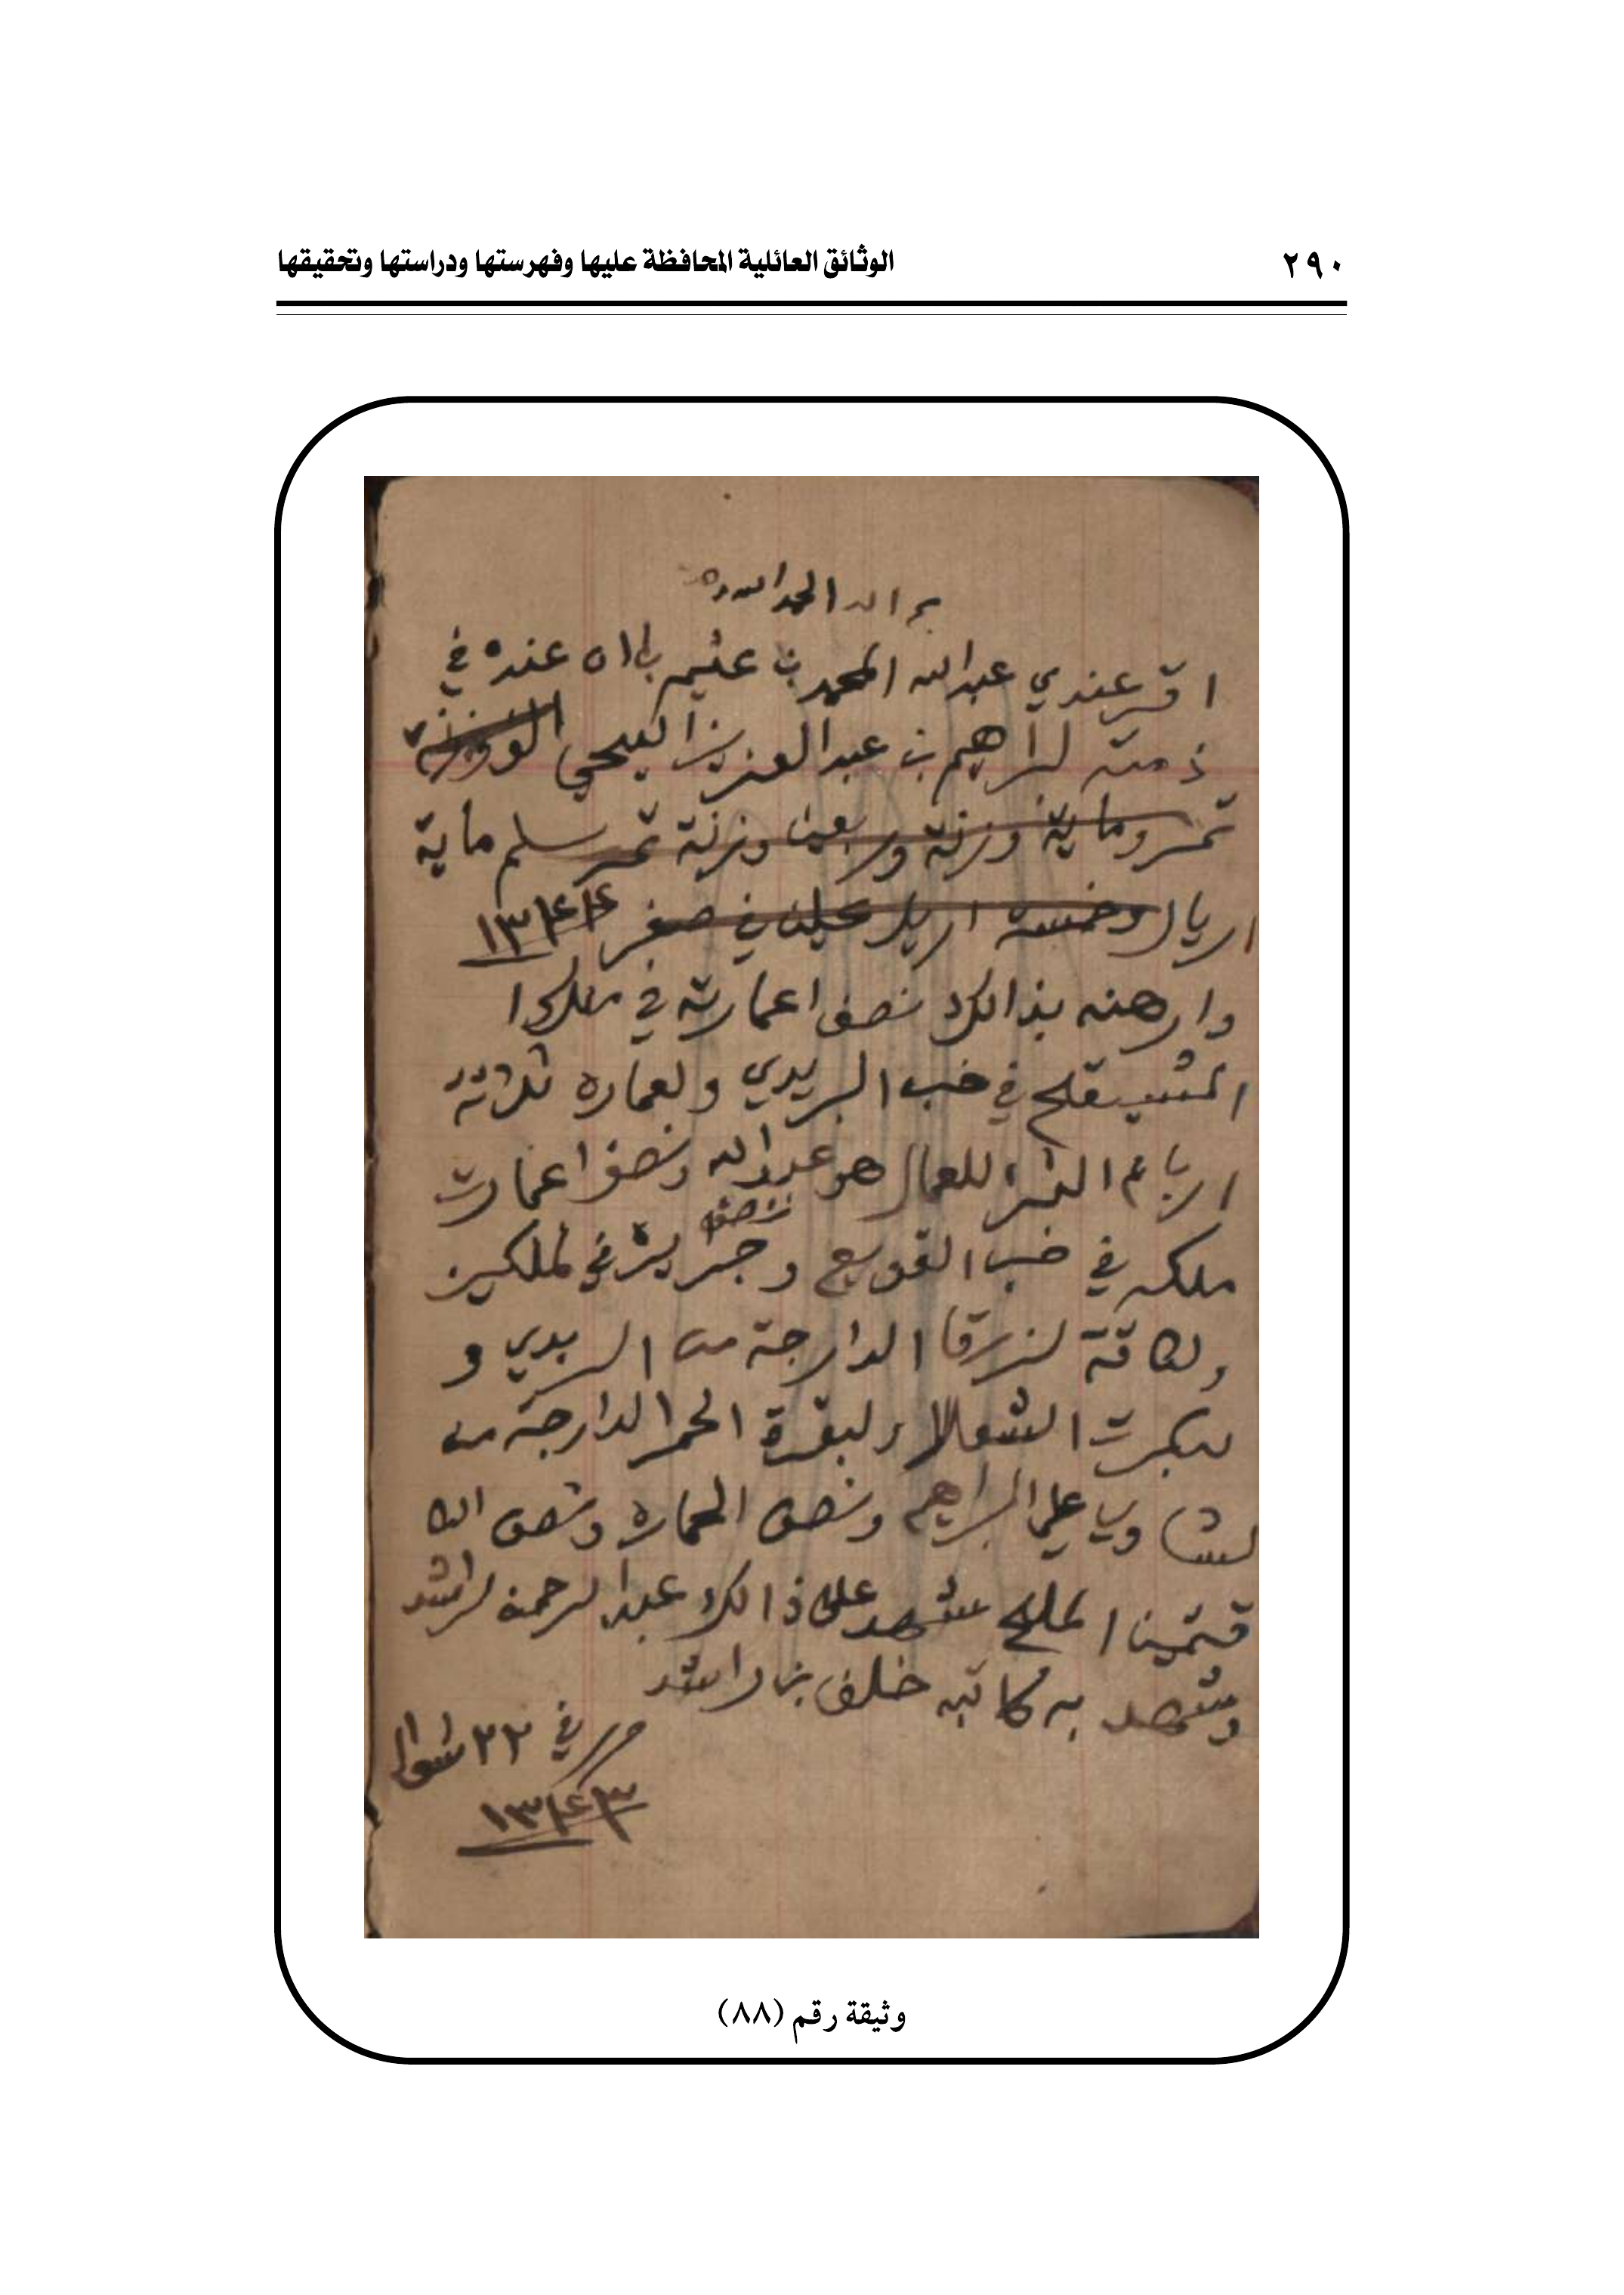 ٢٩٠
الوثائق العائلية المحافظة عليها وفهرستها ودراستها وتحقيقها
الحمد لله وحده
اقر عندي عبدالله المحمد بن عثيم بان عنده في
ذمته لبراهيم بن عبدالعزيز اليحي الف وزنة
تمر وماية وزنة وربعين وزنة تمر سلم ماية
اريال وخمسة اريل يحلن في صفر ١٣٤٤
وارهنه بذالك نصف اعمارته في ملك
في خب البريدي ولعماره ثلاثة
ارباع الثمر للعمال هو عبدالله ونصف اعمارت
ملكه في خب القويع ونصف جريرة في لملكين
ولناقة لزرقا الدارجة من الربدي و
لبكرت الشعلا ولبقرة الحمرا الدارجة من
علي البراهيم ونصف الحماره ونصف النا
قتين الملح شهد على ذالك عبدالرحمن لراشد
وشهد به كاتبه خلف بن راشد
حرر في ٢٢ شوال
١٣٤٣
وثيقة رقم (٨٨)